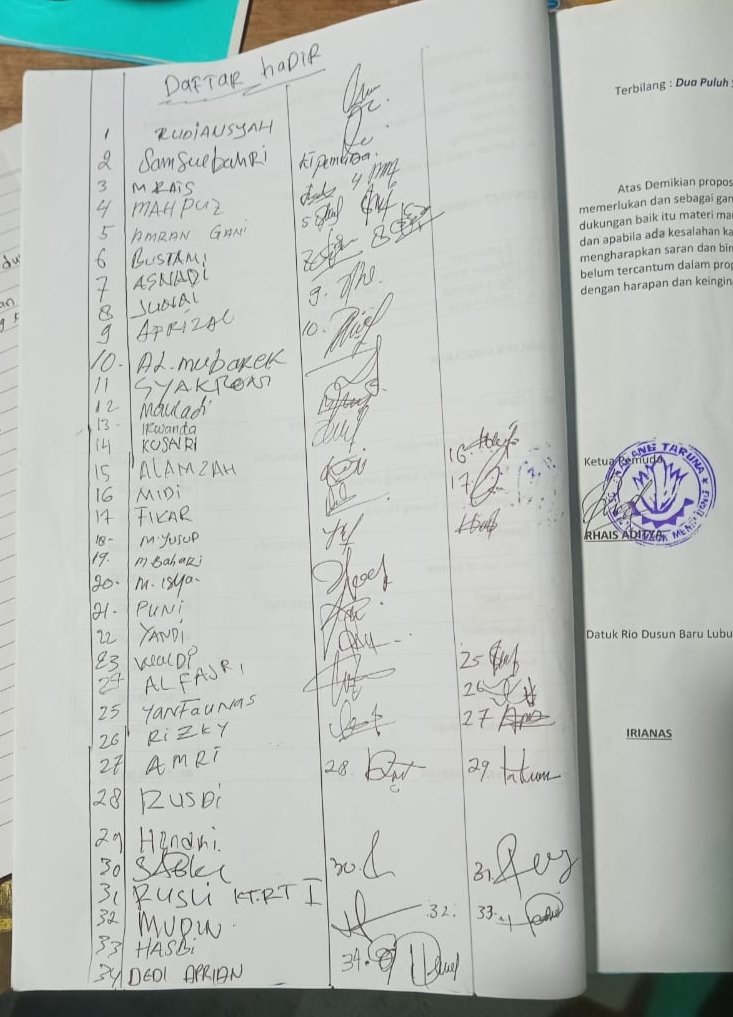 DAFTAR HADIR
1 RUDIANSYAH
2 Samsuebahri
ktpemuda.
3 M RAIS
4 MAHPUZ
4
5 AMRAN GANI
5
6 BUSTAMi
7 ASNADI
7
8
8 JUNAi
9 APRIZAL
9.
10.
10. AL. mubarek
11
12 Mauladi
13. IKwanda
14 KUSAIRI
15 ALAMZAH
16.
16 MIDI
17
17 FIKAR
18- M.YUSUP
19. M Bahari
20. M. isya.
21. PUNi
22 YANDi
23
24 ALFAJRI
25
25 YANFAUNAS
26
26 RIZKY
27
27 AMRI
28.
29.
28 RUSDi
29 Hendri.
30
30.
31.
31 RUSLi KT.RT I
32 MUDIN.
32.
33.
33 HASBi
34.
34 DEDI APRIAN
Terbilang : Dua Puluh
Atas Demikian propos
memerlukan dan sebagai gam
dukungan baik itu materi mau
dan apabila ada kesalahan ka
mengharapkan saran dan bim
belum tercantum dalam prop
dengan harapan dan keingin
Ketua Pemuda
KARANG TARUNA
RHAIS ADITYA
Datuk Rio Dusun Baru Lubu
IRIANAS